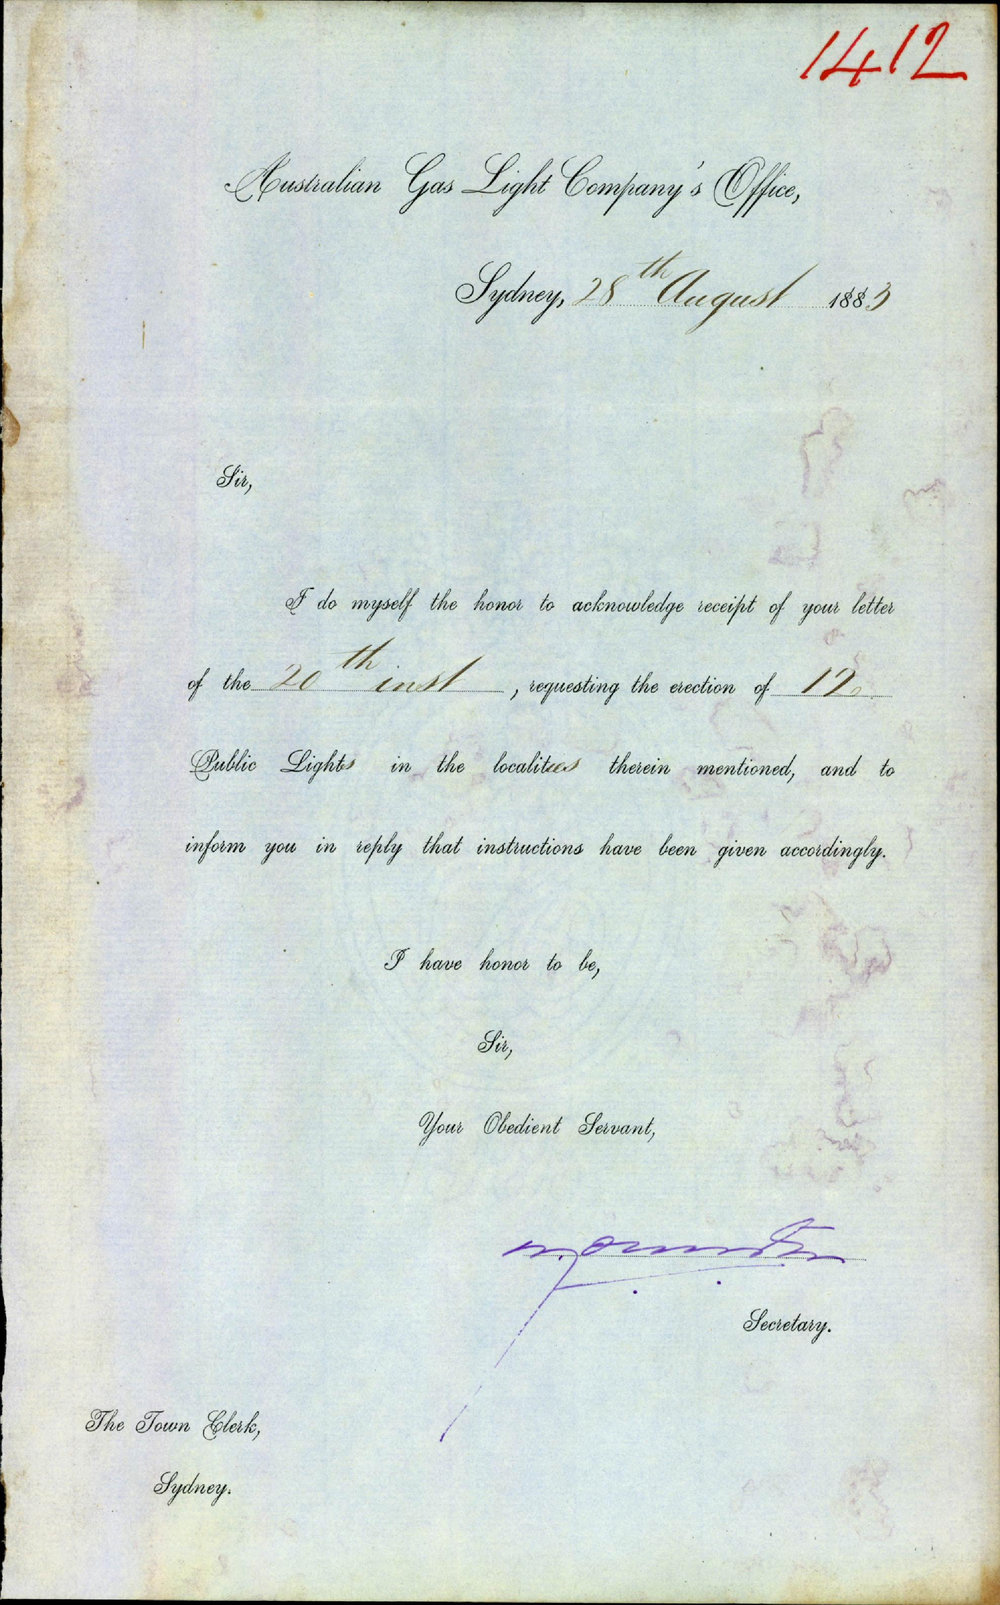 1412
Australian Gas Light Company's Office,
Sydney, 28th August 1883
Sir,
I do myself the honor to acknowledge receipt of your letter
of the 20th inst, requesting the erection of 12
Public Lights in the localities therein mentioned, and to
inform you in reply that instructions have been given accordingly.
I have honor to be,
Sir,
Your Obedient Servant,
Secretary.
The Town Clerk,
Sydney.